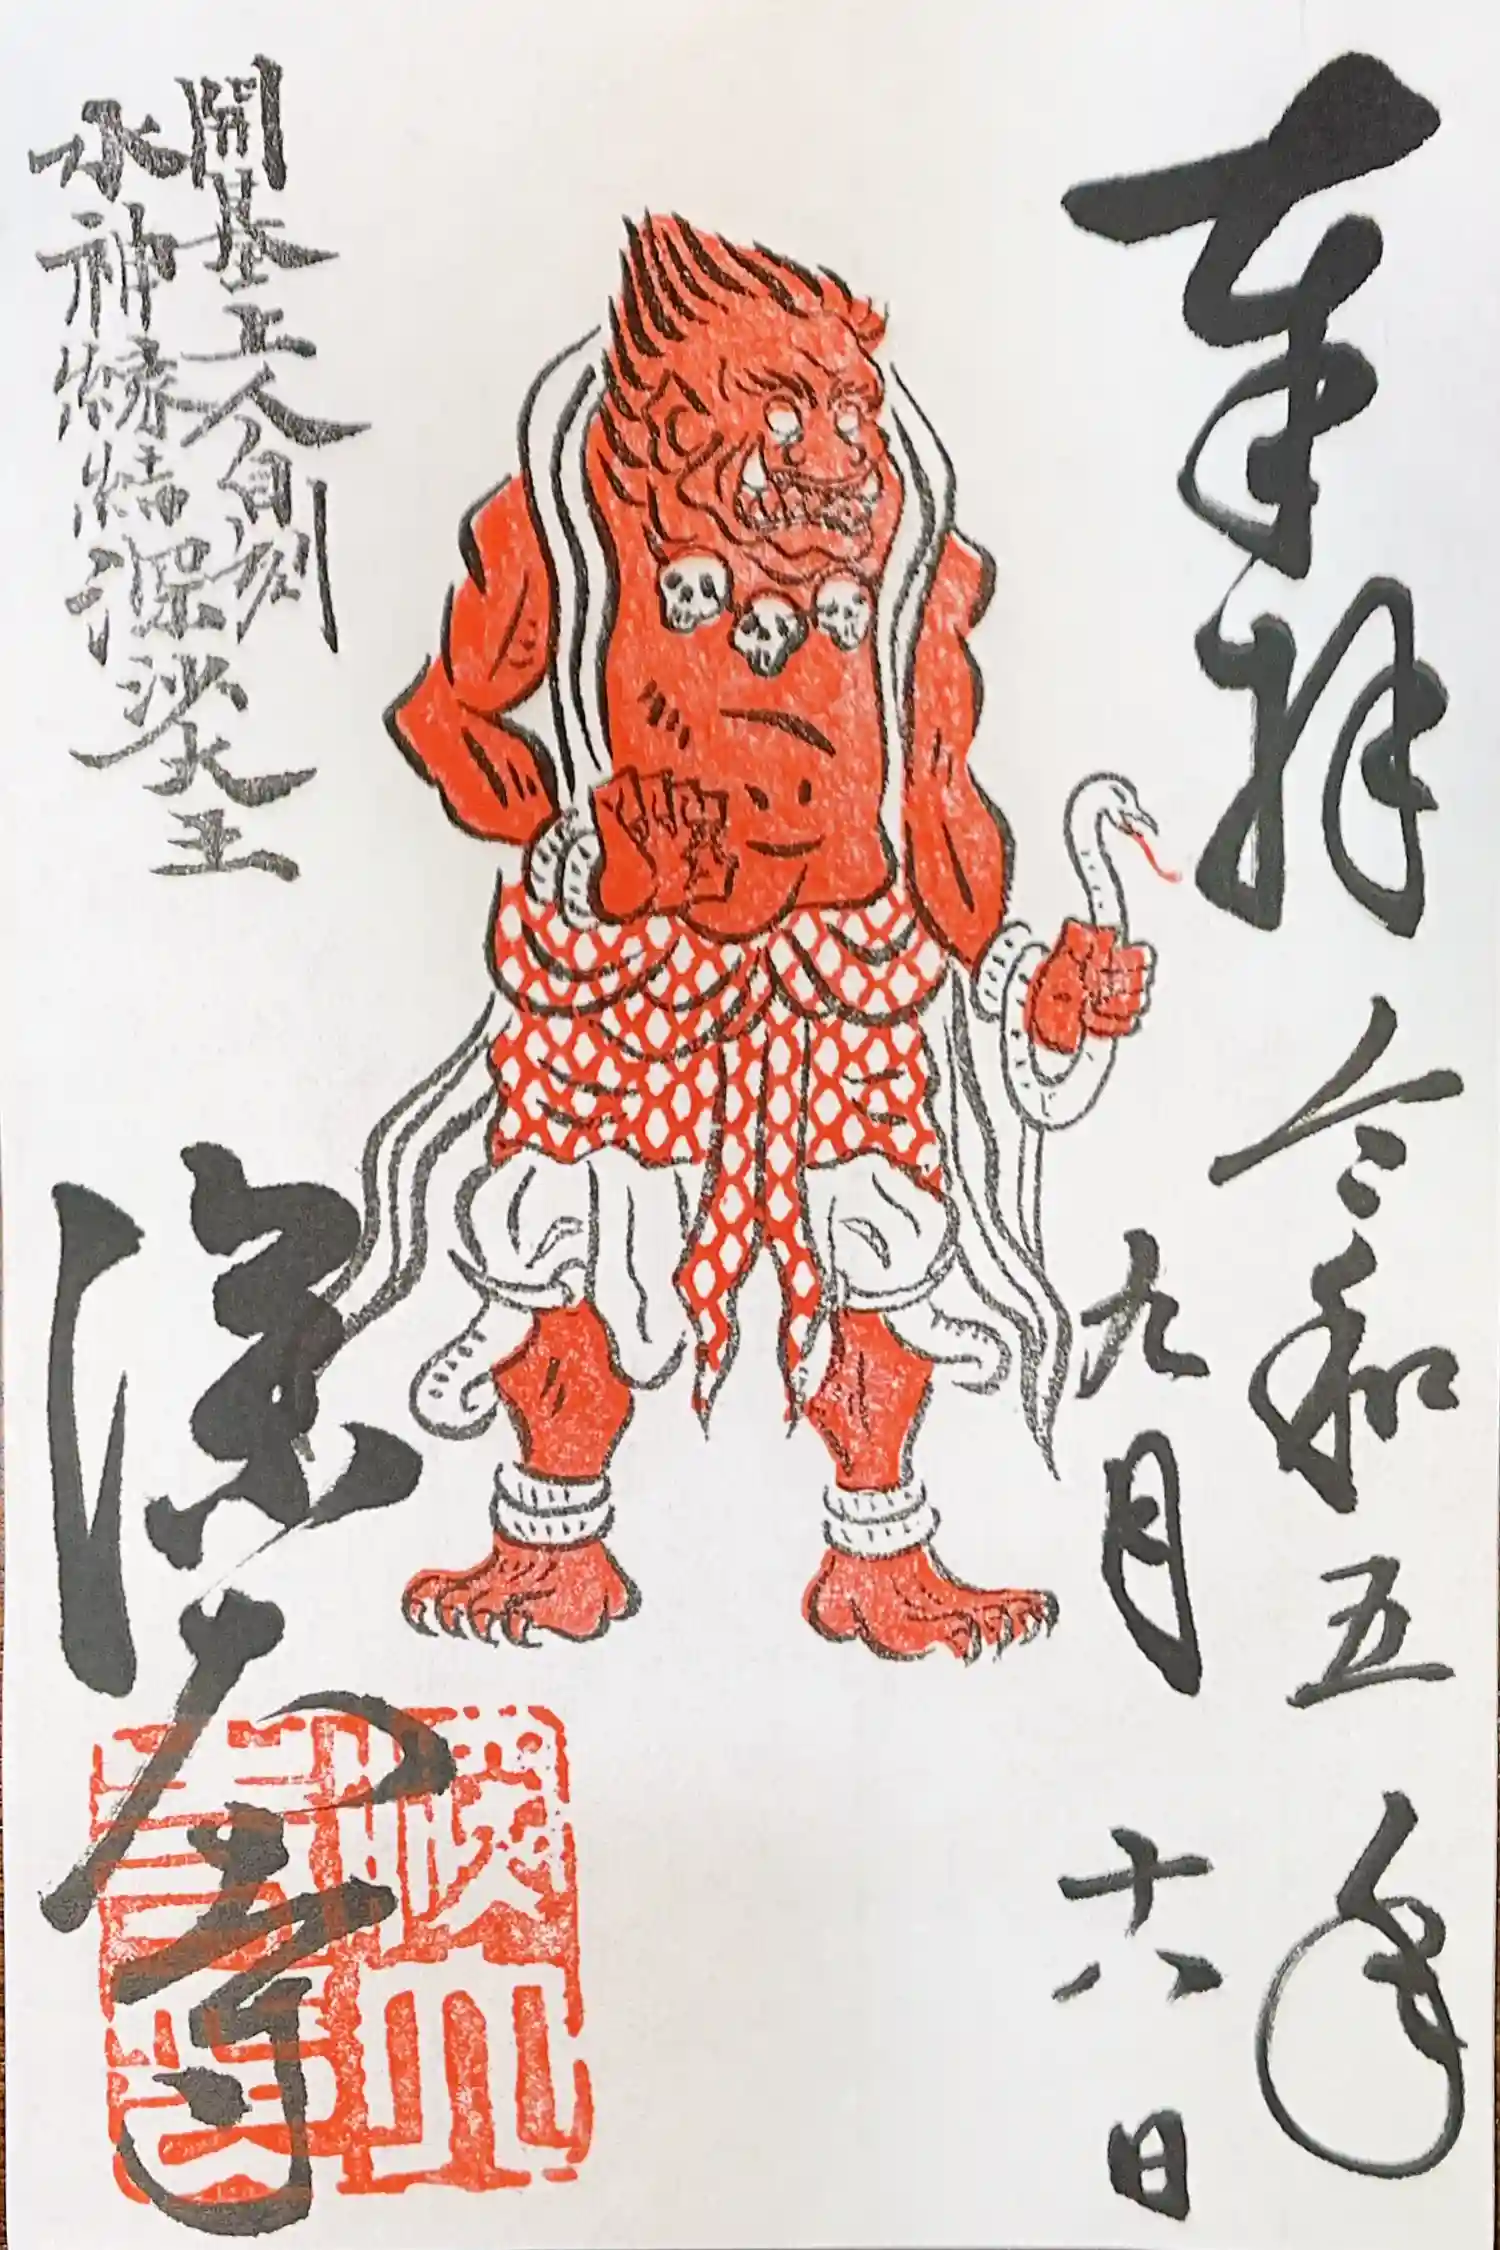 奉拝
令和五年
九月十八日
開基上人自刻
水神縁結深沙大王
深大寺